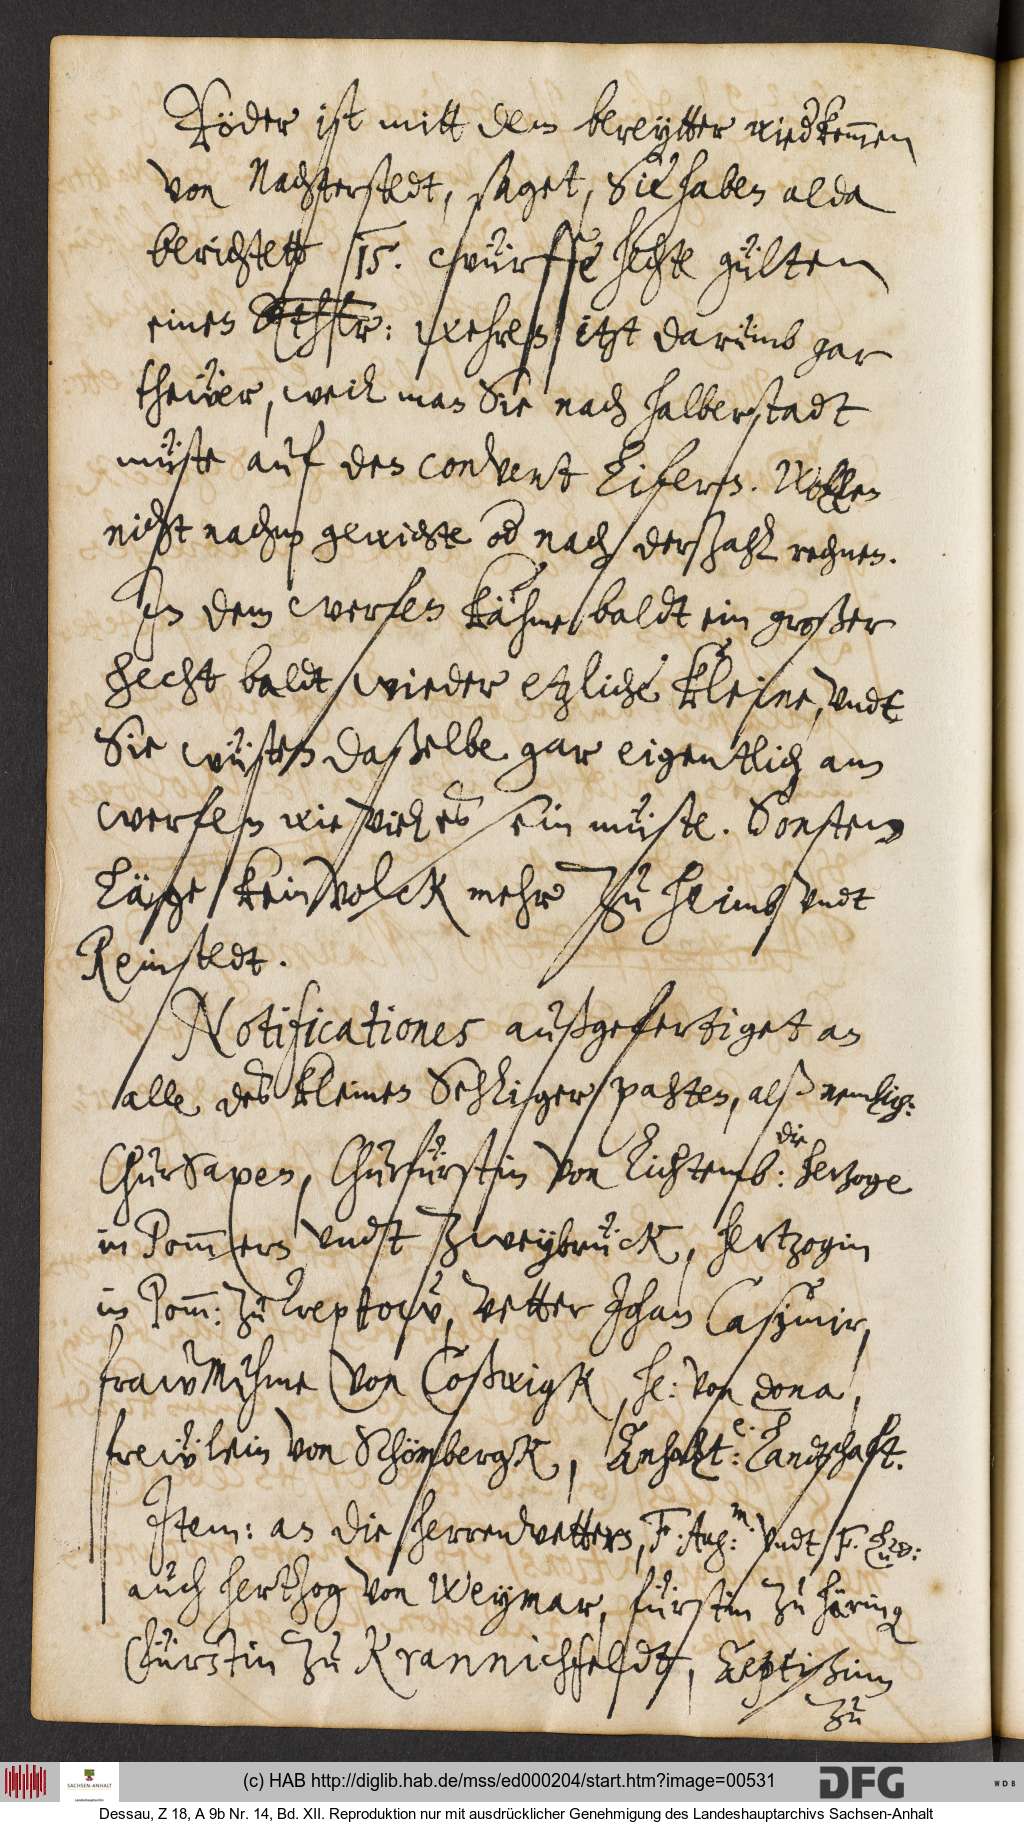 Röder ist mitt dem bereytter wied[er]kommen
von Nachterstedt, saget, Sie haben alda
berichtett 15. würffe hechte gülten
einen Rthlr: wehren itzt darumb gar
theüer, weil man Sie nach halberstadt
müste auf den convent liefern. Wollen
nicht nachm gewichte od nach der zahl rechnen.
In dem werfen kähme baldt ein großer
hecht baldt wieder etzliche kleine, vndt
Sie wüsten daßelbe gar eigentlich am
werfen wie viel es sein müste. Sonsten
läge kein volck mehr zu heimb vndt
Reinstedt.
Notificationes außgefertiget an
alle des kleinen Sehliger pahten, alß nemlich:
ChurSaxen, Churfürstin von Lichtemb: die hertzoge
in Pommern vndt Zweybrück, hertzogin
in Pom: zu Treptow, vetter Johan Casimir,
fraw Muhme von Coßwigk, he: von dona,
frewlein von Schömbergk, Anhalt: Landtschaft.
Item: an die herren vettern, F. Aug: vndt F. Ludw:
auch hertzog von Weymar, fürstin zu häring
fürstin zu Krannichfeldt, Aeptißinn
zu
(c) HAB http://diglib.hab.de/mss/ed000204/start.htm?image=00531
DFG
WDB
SACHSEN-ANHALT
Dessau, Z 18, A 9b Nr. 14, Bd. XII. Reproduktion nur mit ausdrücklicher Genehmigung des Landeshauptarchivs Sachsen-Anhalt